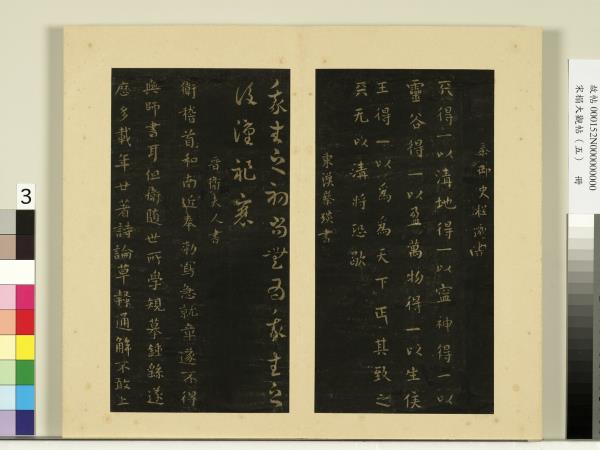 故帖 000152N000000000
宋搨大觀帖（五） 冊
秦御史程邈書
天得一以清地得一以寧神得一以
靈谷得一以盈萬物得一以生侯
王得一以為為天下正其致之
天无以清將恐歇
東漢蔡琰書
我生之初尚無為我生之
後漢祚衰
晉衛夫人書
衛稽首和南近奉勅寫急就章遂不得
與師書耳但衛隨世所學規摹鍾繇遂
歷多載年廿著詩論草隸通解不敢上
3